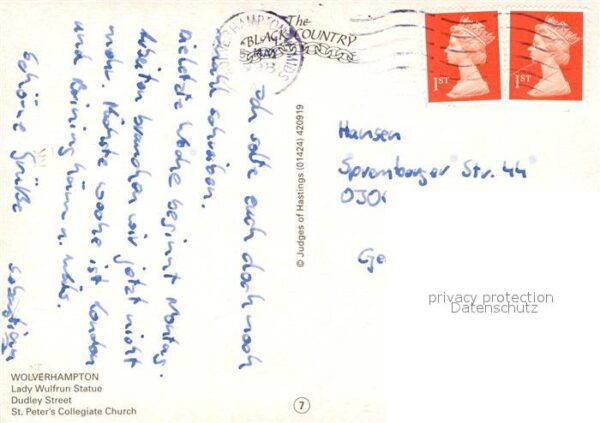 Ich sollte euch doch noch
schreiben.
Die letzte Woche beginnt Montag.
Arbeiten brauchen wir jetzt nicht
mehr. Nächste Woche ist London
und
Schöne Grüße
Sebastian
The
BLACK COUNTRY
WOLVERHAMPTON
1ST
1ST
Hansen
Spremberger Str. 44
030
Ge
© Judges of Hastings (01424) 420919
privacy protection
Datenschutz
WOLVERHAMPTON
Lady Wulfrun Statue
Dudley Street
St. Peter's Collegiate Church
7